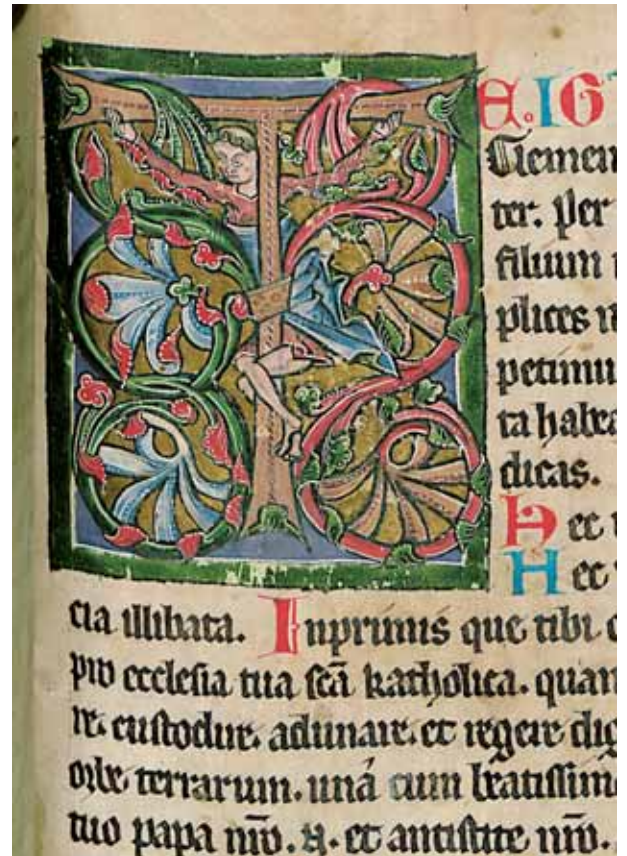 T E. IG
Clemen
ter. Per
filium
plices
petimu
ta habea
dicas.
Hec
Hec
cia illibata. Inprimis que tibi
pro ecclesia tua scā katholica. quam
re. custodire. adunare. et regere dig
orbe terrarum. unā cum beatissimo
tuo papa nr̄o. N. et antistite nr̄o.